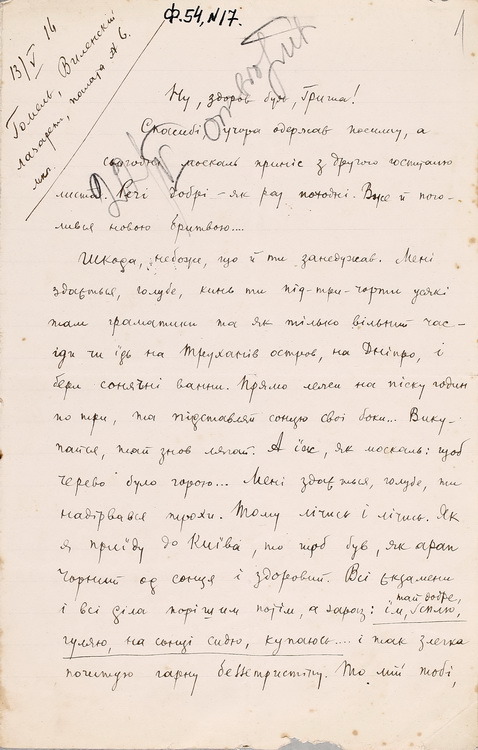 Ф.54, №17.
1
13/V 16
Гомель, Виленский
лазарет, палата № 6.
Ну, здоров був, Гриша!
Спасибі, учора одержав посилку, а
сьогодні москаль приніс з другого госпиталю
листа. Речі добрі – як раз погодні. Вже й пого-
лився новою бритвою....
Шкода, небоже, що й ти занедужав. Мені
здається, голубе, кинь ти під-три-чорти усякі
там граматики та як тілько вільний час –
іди чи їдь на Труханів остров, на Дніпро, і
бери сонячні ванни. Прямо лежи на піску годин
по три, та підставляй сонцю свої боки... Вику-
пайся, тай знов лягай. А їж, як москаль: щоб
черево було горою... Мені здається, голубе, ти
надірвався трохи. Тому лічись і лічись. Як
я приїду до Київа, то щоб був, як арап
чорний од сонця і здоровий. Всі екзамени
і всі діла порішим потім, а зараз: їм, тай добре, сплю,
гуляю, на сонці сидю, купаюсь.... і так злегка
почитую гарну белетристіку. То мій тобі,